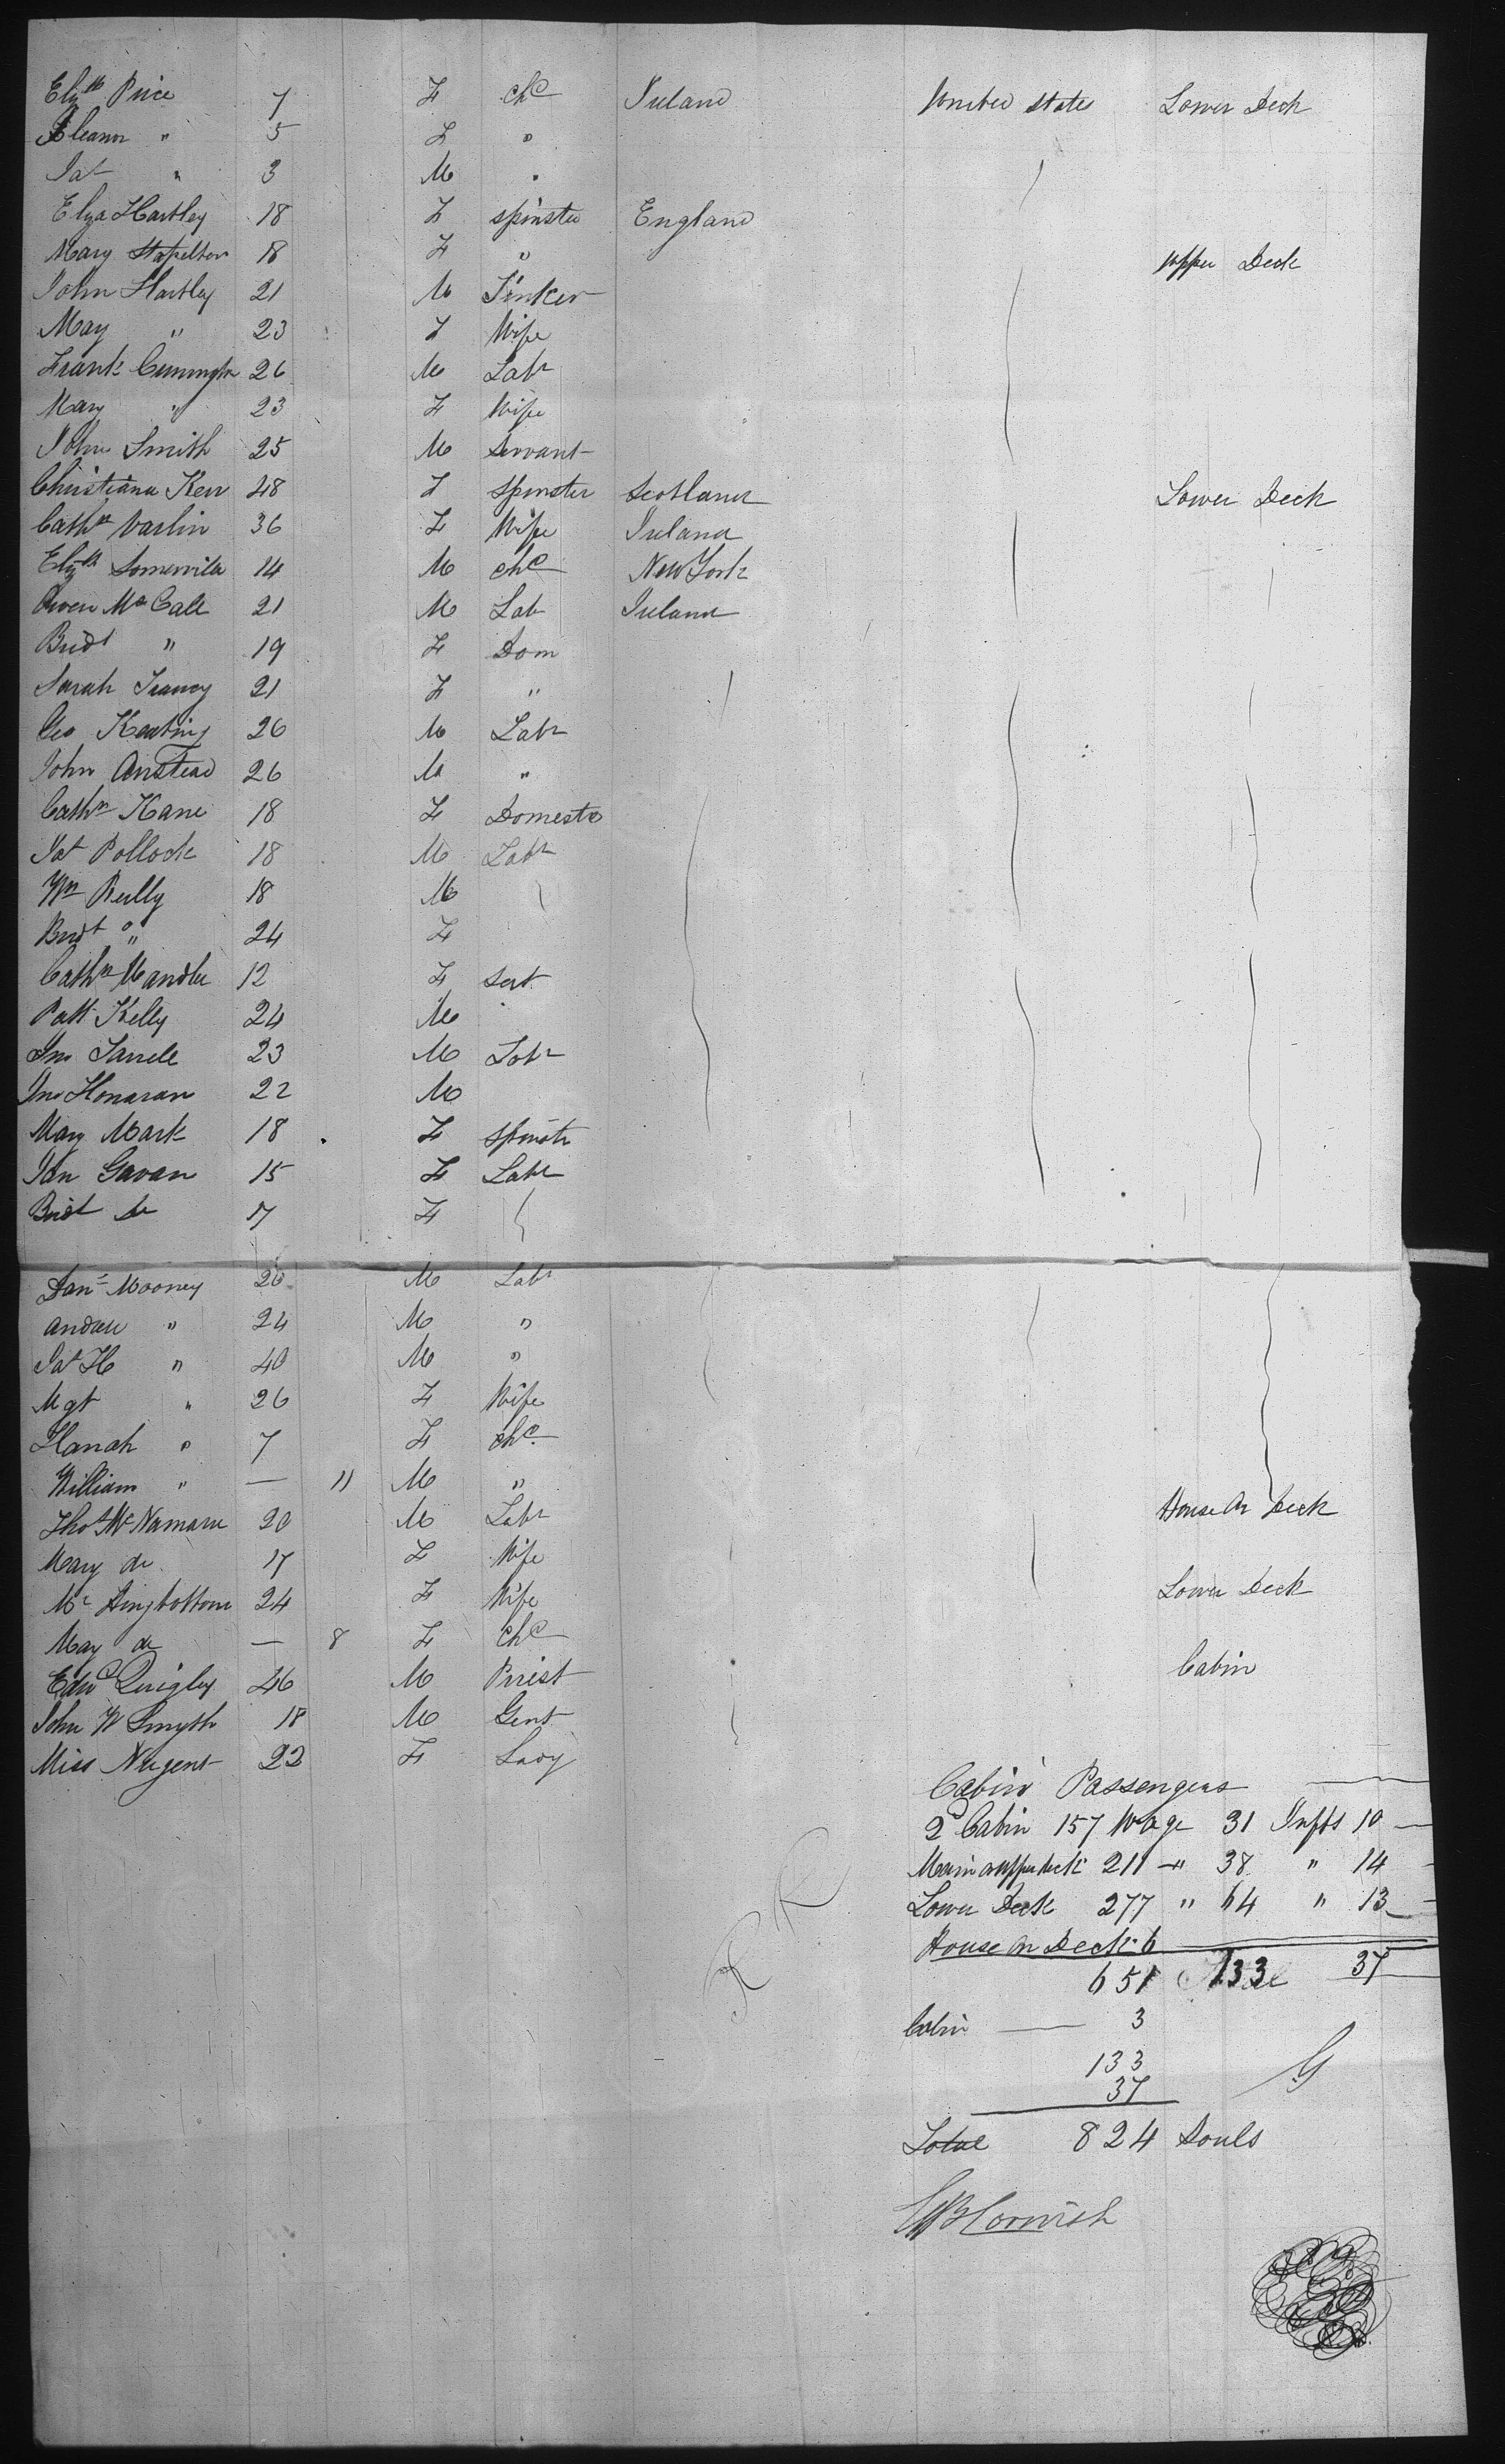 Elizth Price 7 F chd Ireland United State Lower Deck
Eleanor " 5 F "
Pat " 3 M "
Eliza Hartley 18 F spinster England
Mary Stapelton 18 F " upper Deck
John Hartley 21 M Tinker
May " 23 F Wife
Frank Cunningh 26 M Labr
Mary " 23 F Wife
John Smith 25 M Servant
Christiana Kerr 48 F Spinster Scotland Lower Deck
Cathn Varlin 36 F Wife Ireland
Elizth Somervile 14 M chd New York
Owen McCall 21 M Lab Ireland
Bridt " 19 F Dom
Sarah 21 F "
Geo Keating 26 M Labr
John Anstead 26 M "
Cathn Kane 18 F Domestc
Pat Pollock 18 M Labr
Wm Reilly 18 M
Bridt " 24 F
Cathn 12 F Sert
Patt Kelly 24 M
Jno 23 M Labr
Jno Honaran 22 M
Mary Mark 18 F spinstr
Gavan 15 F Labr
Bridt do 17 F
Danl Mooney 26 M Labr
Andrew " 24 M "
Pat H " 40 M "
Mgt " 26 F Wife
Hanah " 7 F chd
William " — 11 M "
Thos McNamara 20 M Labr House On Deck
Mary do 17 F Wife
24 F Wife Lower Deck
May do — 8 F Chd
Edwd Quigley 46 M Preist Cabin
John W Smyth 18 M Gent
Miss Nugent 22 F Lady
Cabin Passengers —
2d Cabin 157 10 age 31 Infts 10 —
Main or upper deck 211 " 38 " 14 -
Lower Deck 277 " 64 " 13 -
House On Deck 6
651 133 37
Cabin — 3
133
37
Total 824 Souls
Cornish